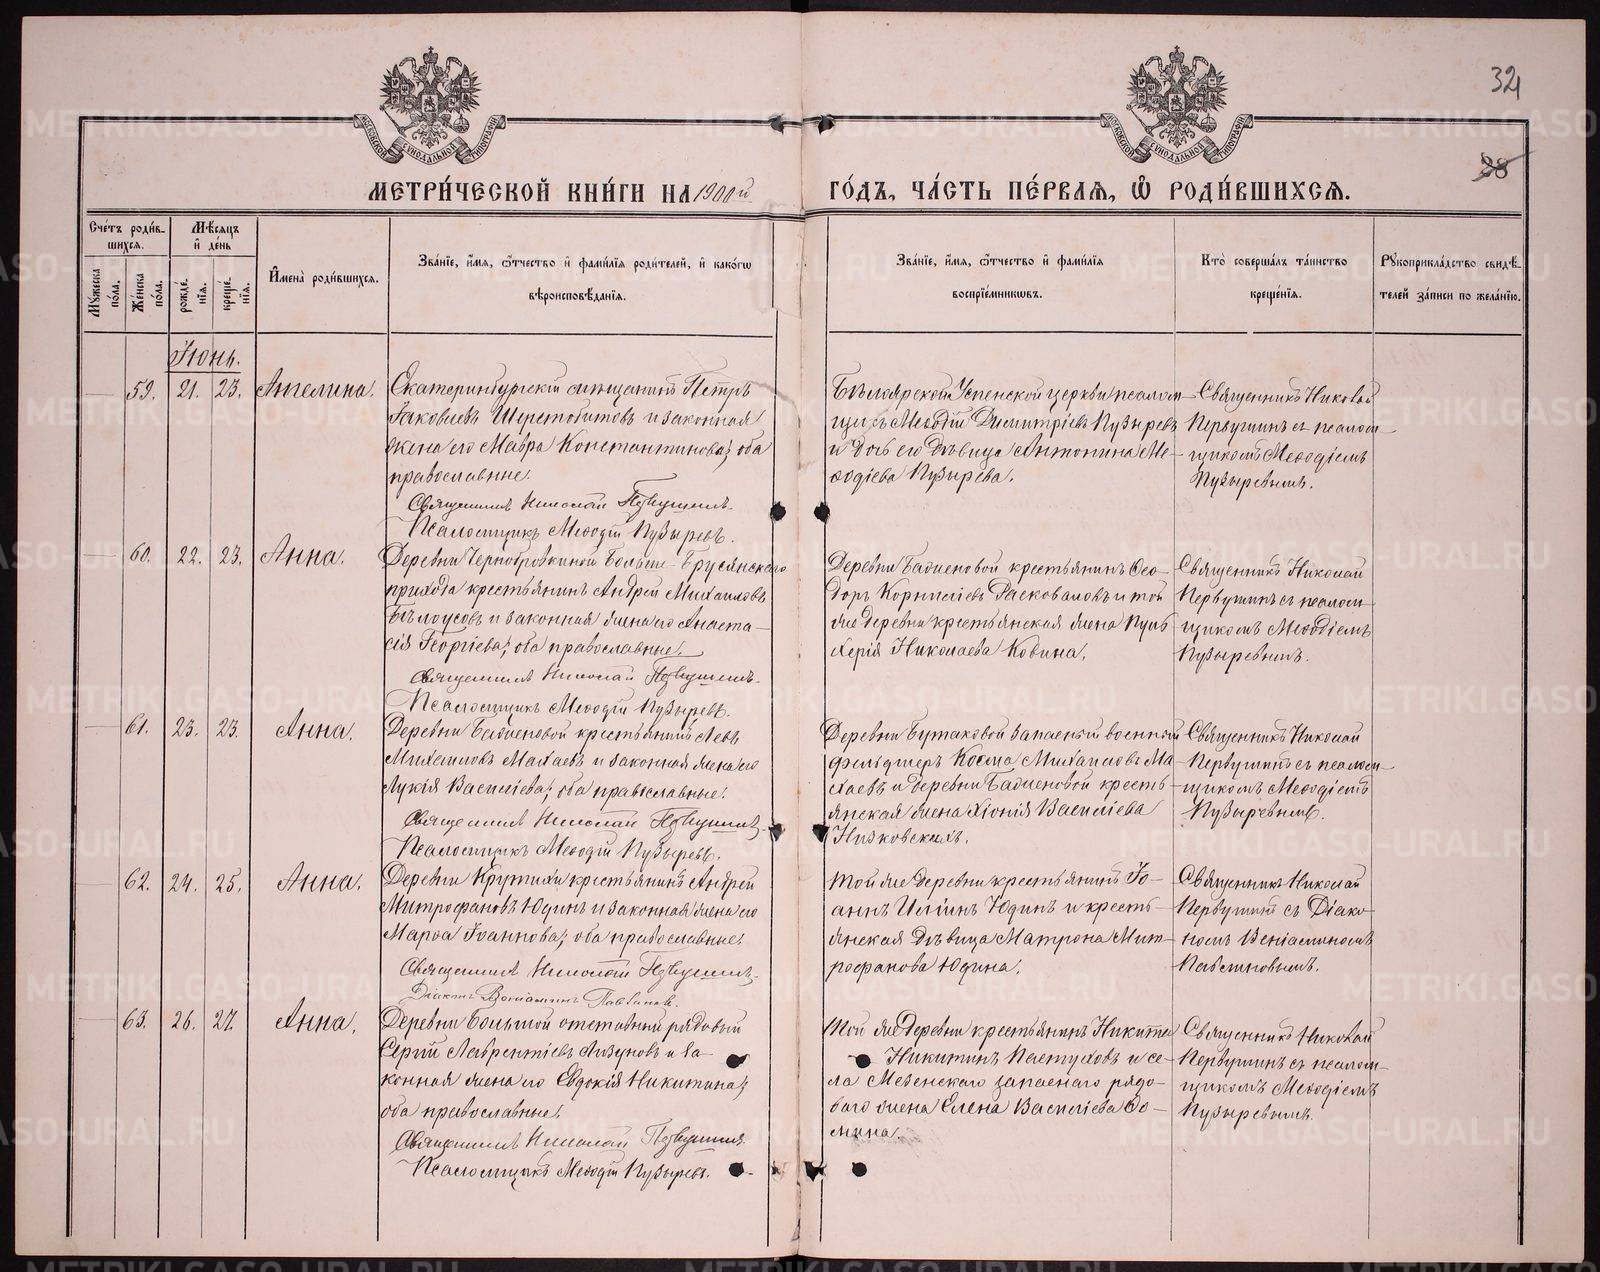 32
38
МЕТРИ́ЧЕСКОЙ КНИ́ГИ НА 1900й ГО́ДЪ, ЧА́СТЬ ПЕ́РВАѦ, Ѽ РОДИ́ВШИХСѦ.
Сче́тъ роди́в-
шихся.
Мѣ́сяцъ
и҆ де́нь
Мꙋ́жеска по́ла.
Же́нска по́ла.
рожде́нїѧ.
креще́нїѧ.
И҆мена̀ роди́вшихся.
Зва́нїе, и҆́мѧ, ѻ҆́тчество и҆ фами́лїѧ роди́телей, и҆ како́гѡ
вѣроисповѣ́данїѧ.
Зва́нїе, и҆́мѧ, ѻ҆́тчество и҆ фами́лїѧ
воспрїе́мникѡвъ.
Кто̀ соверша́лъ та́инство
креще́нїѧ.
Рꙋкоприкла́дство свидѣ́-
телей за́писи по жела́нїю.
Іюнь.
59. 21. 23. Ангелина.
Екатеринбургскій мѣщанинъ Петръ
Іаковлевъ Шерстобитовъ и законная
жена его Мавра Константинова; оба
православные.
Священникъ Николай Первушинъ.
Псаломщикъ Меѳодій Пузыревъ.
Бѣлоярской Успенской церкви псалом-
щикъ Меѳодій Димитріевъ Пузыревъ
и дочь его дѣвица Антонина Ме-
ѳодіева Пузырева.
Священникъ Николай
Первушинъ съ псалом-
щикомъ Меѳодіемъ
Пузыревымъ.
60. 22. 23. Анна.
Деревни Чернобровкиной Больше-Брусянскаго
прихода крестьянинъ Андрей Михаиловъ
Бѣлоусовъ и законная жена его Анаста-
сія Георгіева; оба православные.
Священникъ Николай Первушинъ.
Псаломщикъ Меѳодій Пузыревъ.
Деревни крестьянинъ Ѳео-
доръ Корниліевъ и той
же деревни крестьянская жена Пуль-
херія Николаева Ковина.
Священникъ Николай
Первушинъ съ псалом-
щикомъ Меѳодіемъ
Пузыревымъ.
61. 23. 23. Анна.
Деревни крестьянинъ Левъ
Михаиловъ Махаевъ и законная жена его
Лукія Василіева; оба православные.
Священникъ Николай Первушинъ.
Псаломщикъ Меѳодій Пузыревъ.
Деревни Бутаковой запасный военный
фельдшеръ Косма Михаиловъ Ма-
хаевъ и деревни кресть-
янская жена Хіонія Василіева
Низковскихъ.
Священникъ Николай
Первушинъ съ псалом-
щикомъ Меѳодіемъ
Пузыревымъ.
62. 24. 25. Анна.
Деревни Крутихи крестьянинъ Андрей
Митрофановъ Юдинъ и законная жена его
Марѳа Іоаннова; оба православные.
Священникъ Николай Первушинъ.
Діаконъ Веніаминъ
Той же деревни крестьянинъ Іо-
аннъ Иліинъ Юдинъ и кресть-
янская дѣвица Матрона Мит-
рофанова Юдина.
Священникъ Николай
Первушинъ съ Діако-
номъ Веніаминомъ
63. 26. 27. Анна.
Деревни Большой отставный рядовый
Сергій Лаврентіевъ Лизуновъ и за-
конная жена его Евдокія Никитина;
оба православные.
Священникъ Николай Первушинъ.
Псаломщикъ Меѳодій Пузыревъ.
Той же деревни крестьянинъ Никита
Никитинъ Пастуховъ и се-
ла Мезенскаго запаснаго рядо-
ваго жена Елена Василіева Ѳо-
мина.
Священникъ Николай
Первушинъ съ псалом-
щикомъ Меѳодіемъ
Пузыревымъ.
METRIKI.GASO-URAL.RU